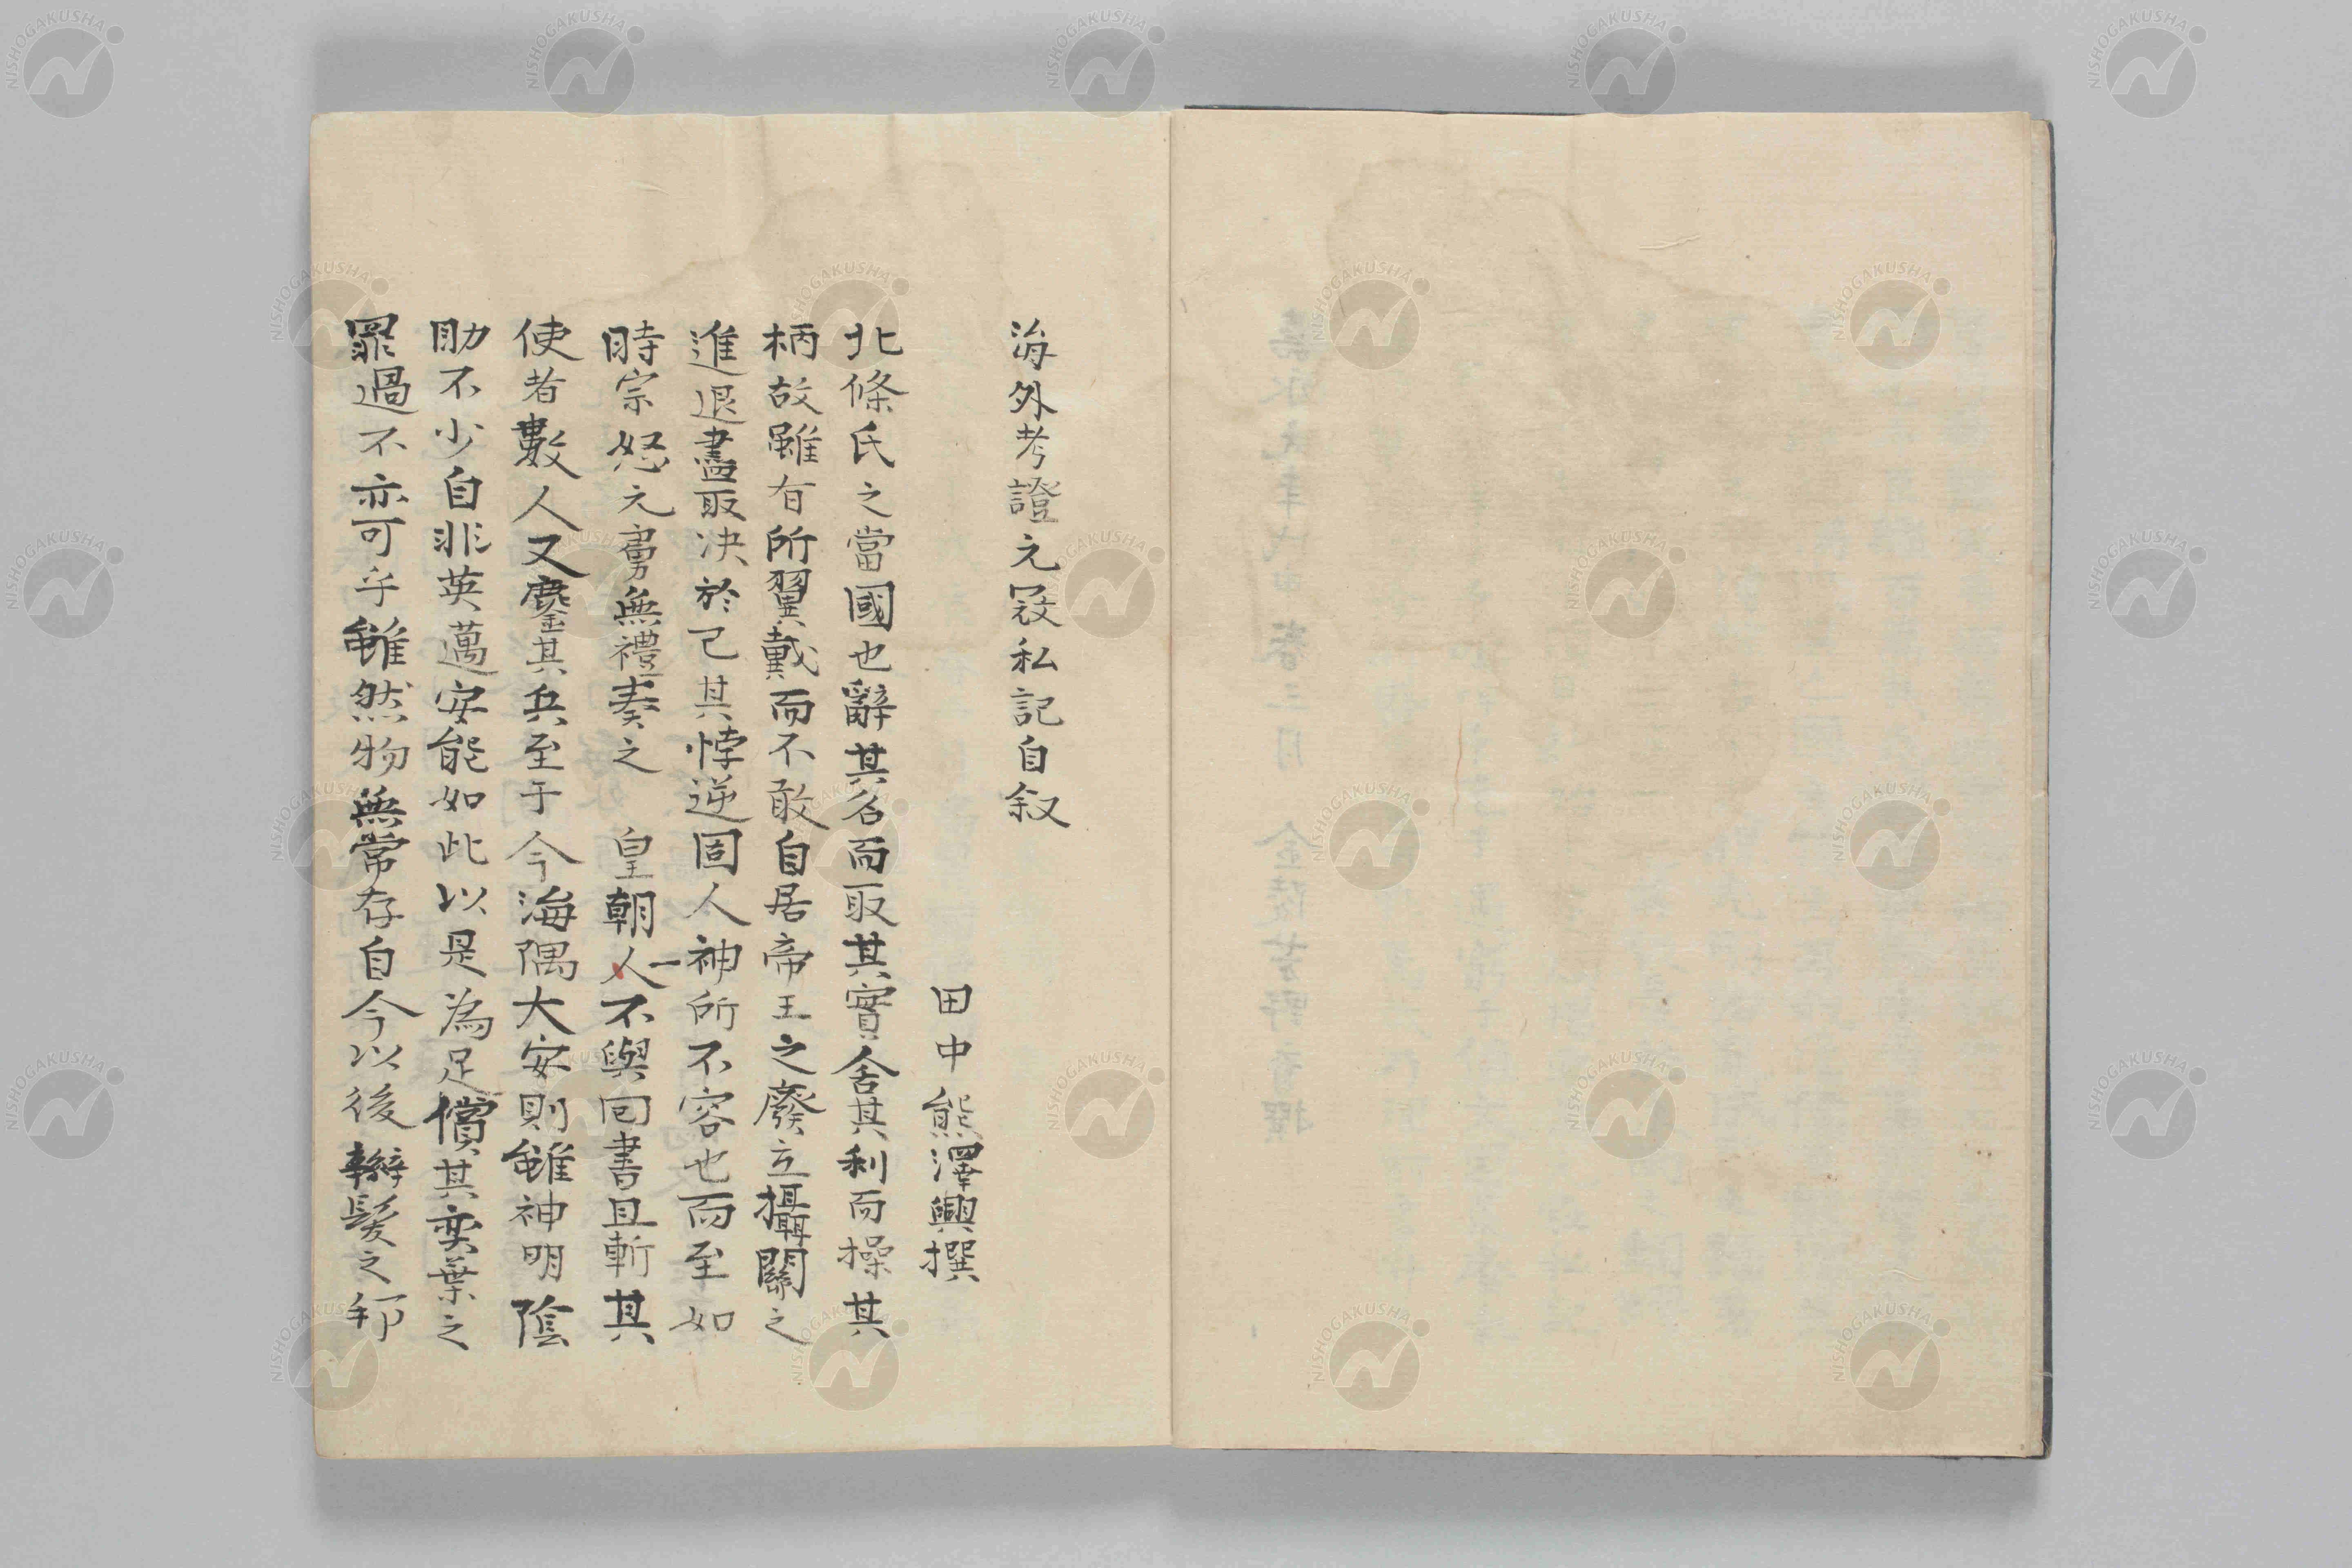 海外考證元寇私記自叙
田中熊澤興撰
北條氏之當國也辭其名而取其實舍其利而操其
柄故雖有所翼戴而不敢自居帝王之廢立攝關之
進退盡取决於己其悖逆固人神所不容也而至如
時宗怒元虜無禮奏之 皇朝人不與囘書且斬其
使者數人又鏖其兵至于今海隅大安則雖神明陰
助不少自非英邁安能如此以是為足償其奕葉之
罪過不亦可乎雖然物無常存自今以後辮髮之邦
NISHOGAKUSHA